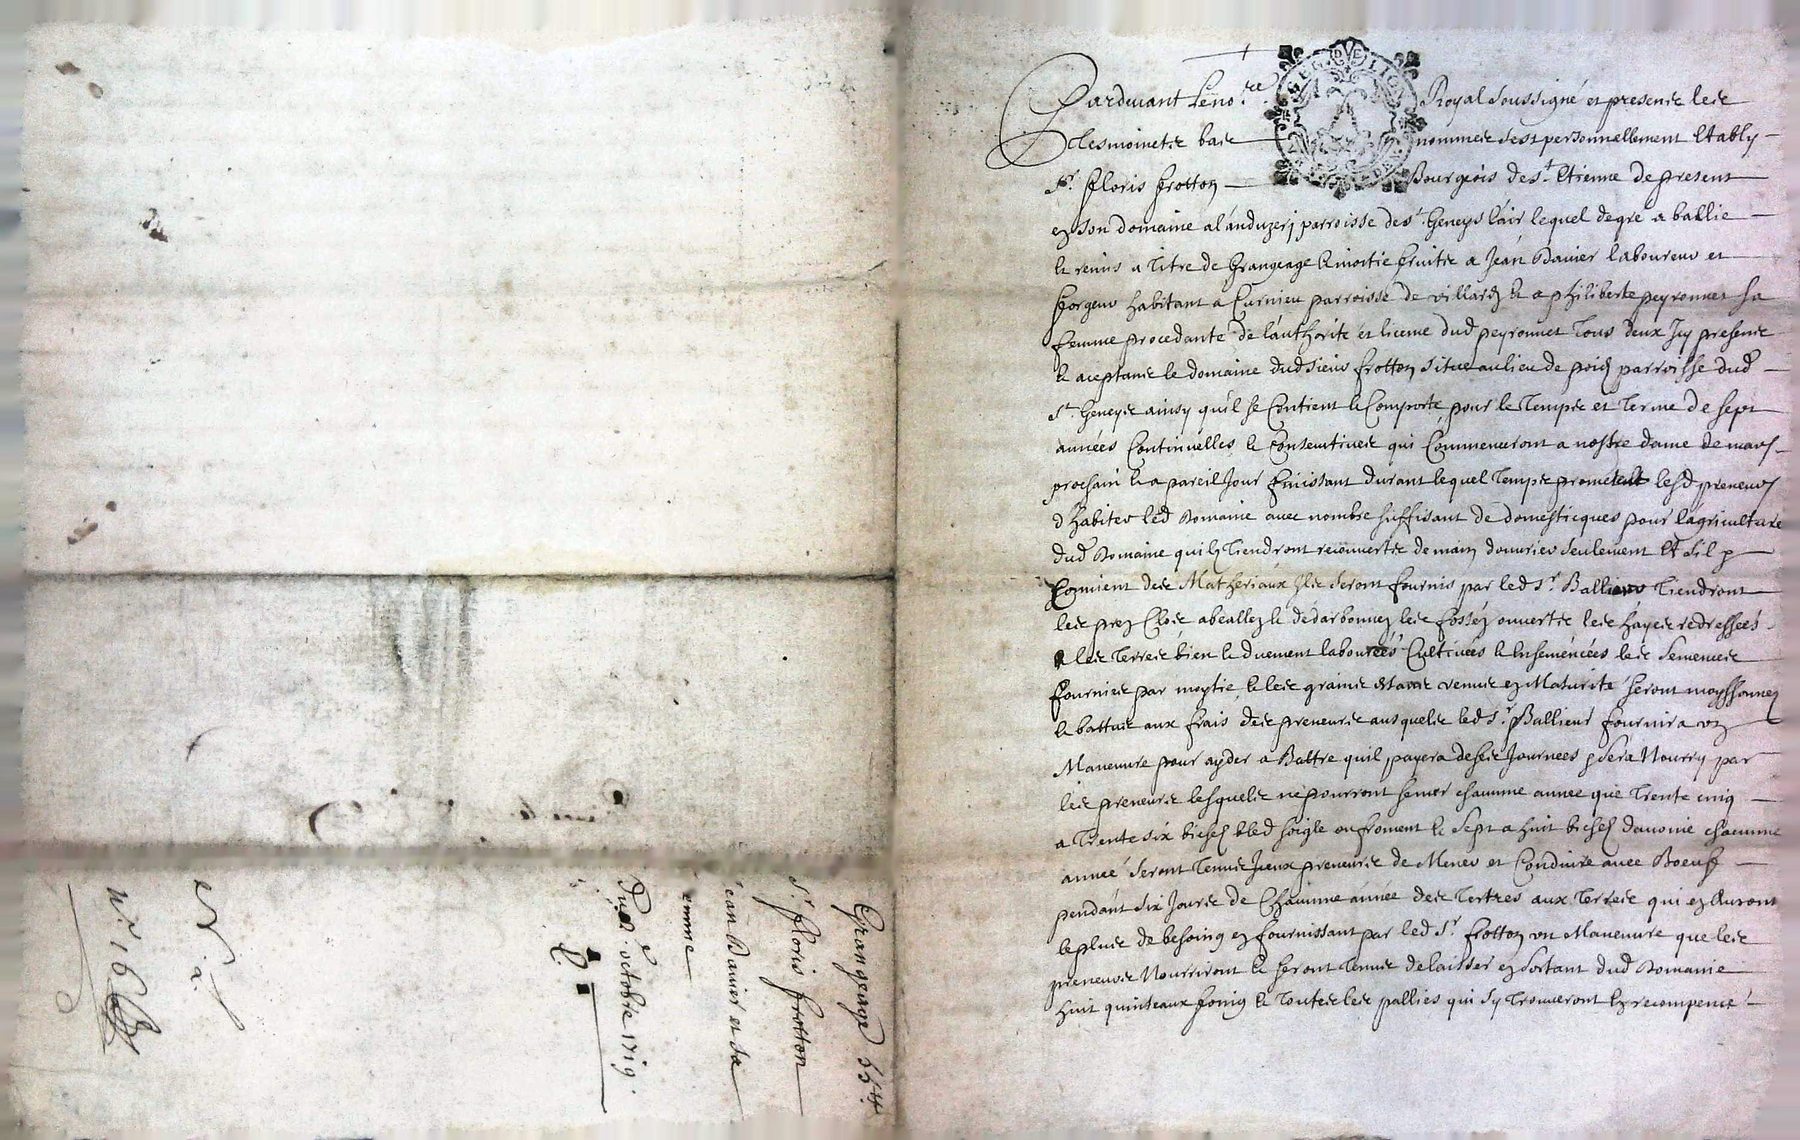 Pardevant Le no.re Royal soussigné et presents les
Tesmoints bas nommes s'est personnellement Etably
Sr. floris frotton Bourgeois de St. Etienne de present
en son domaine a parroisse de St. Geneys lair lequel de gré a ballié
et remis a Titre de Grangeage a moitié fruits a Jean Davier laboureur et
forgeur habitant a Curnieu parroisse de villars et a philiberte peyronnet sa
femme procedante de l'authorité et licence dud peyronnet Tous deux Icy presents
et aceptants le domaine dud sieur frotton situé au lieu de parroisse dud
St Geneys ainsy qu'il se Contient et Comporte pour le Temps et Terme de sept
années Continuelles et Consecutives qui Commenceront a nostre dame de mars
prochain et a pareil Jour finissant durant lequel Temps promettent lesd preneurs
d'habiter led Domaine avec nombre suffisant de domesticques pour l'agriculture
dud Domaine qu'ils Tiendront recouverts de main d'ouvrier seulement Et s'il y
Convient des Matheriaux Ils seront fournis par led Sr. Ballieur Tiendront
les prez Clos abeallez et dedarbonnez les fossez ouverts les hayes redressées
et les Terres bien et duement labourées Cultivées et Enseméncées les semences
fournies par moytié et les grains estants venus en Maturité seront moyssonnez
et battus aux frais des preneurs ausquels led Sr. Ballieur fournira un
Maneuvre pour ayder a Battre qu'il payera de ses Journées et sera Nourry par
les preneurs lesquels ne pourront semer chacunne année que Trente cinq
a Trente six bichets bled soigle ou froment et sept a huit bichets d'avoine chacunne
année seront Tenus Iceux preneurs de Mener et Conduire avec Boeufs
pendant six Jours de Chacunne année des Tertres aux Terres qui en Auront
le plus de besoing en fournissant par led Sr. frotton un Maneuvre que les
preneurs Nourriront et seront Tenus de laisser en sortant dud Domaine
huit quinteaux foing et Toutes les pallies qui s'y Trouveront En recompence
Grangeage
Sr floris frotton
Jean Davier et sa
femme
Du octobre 1719.
N.a